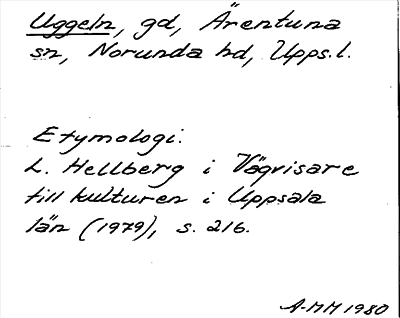 Uggeln, gd, Ärentuna
sn, Norunda hd, Upps.l.
Etymologi:
L. Hellberg i Vägvisare
till kulturen i Uppsala
län (1979), s. 216.
A-MM 1980